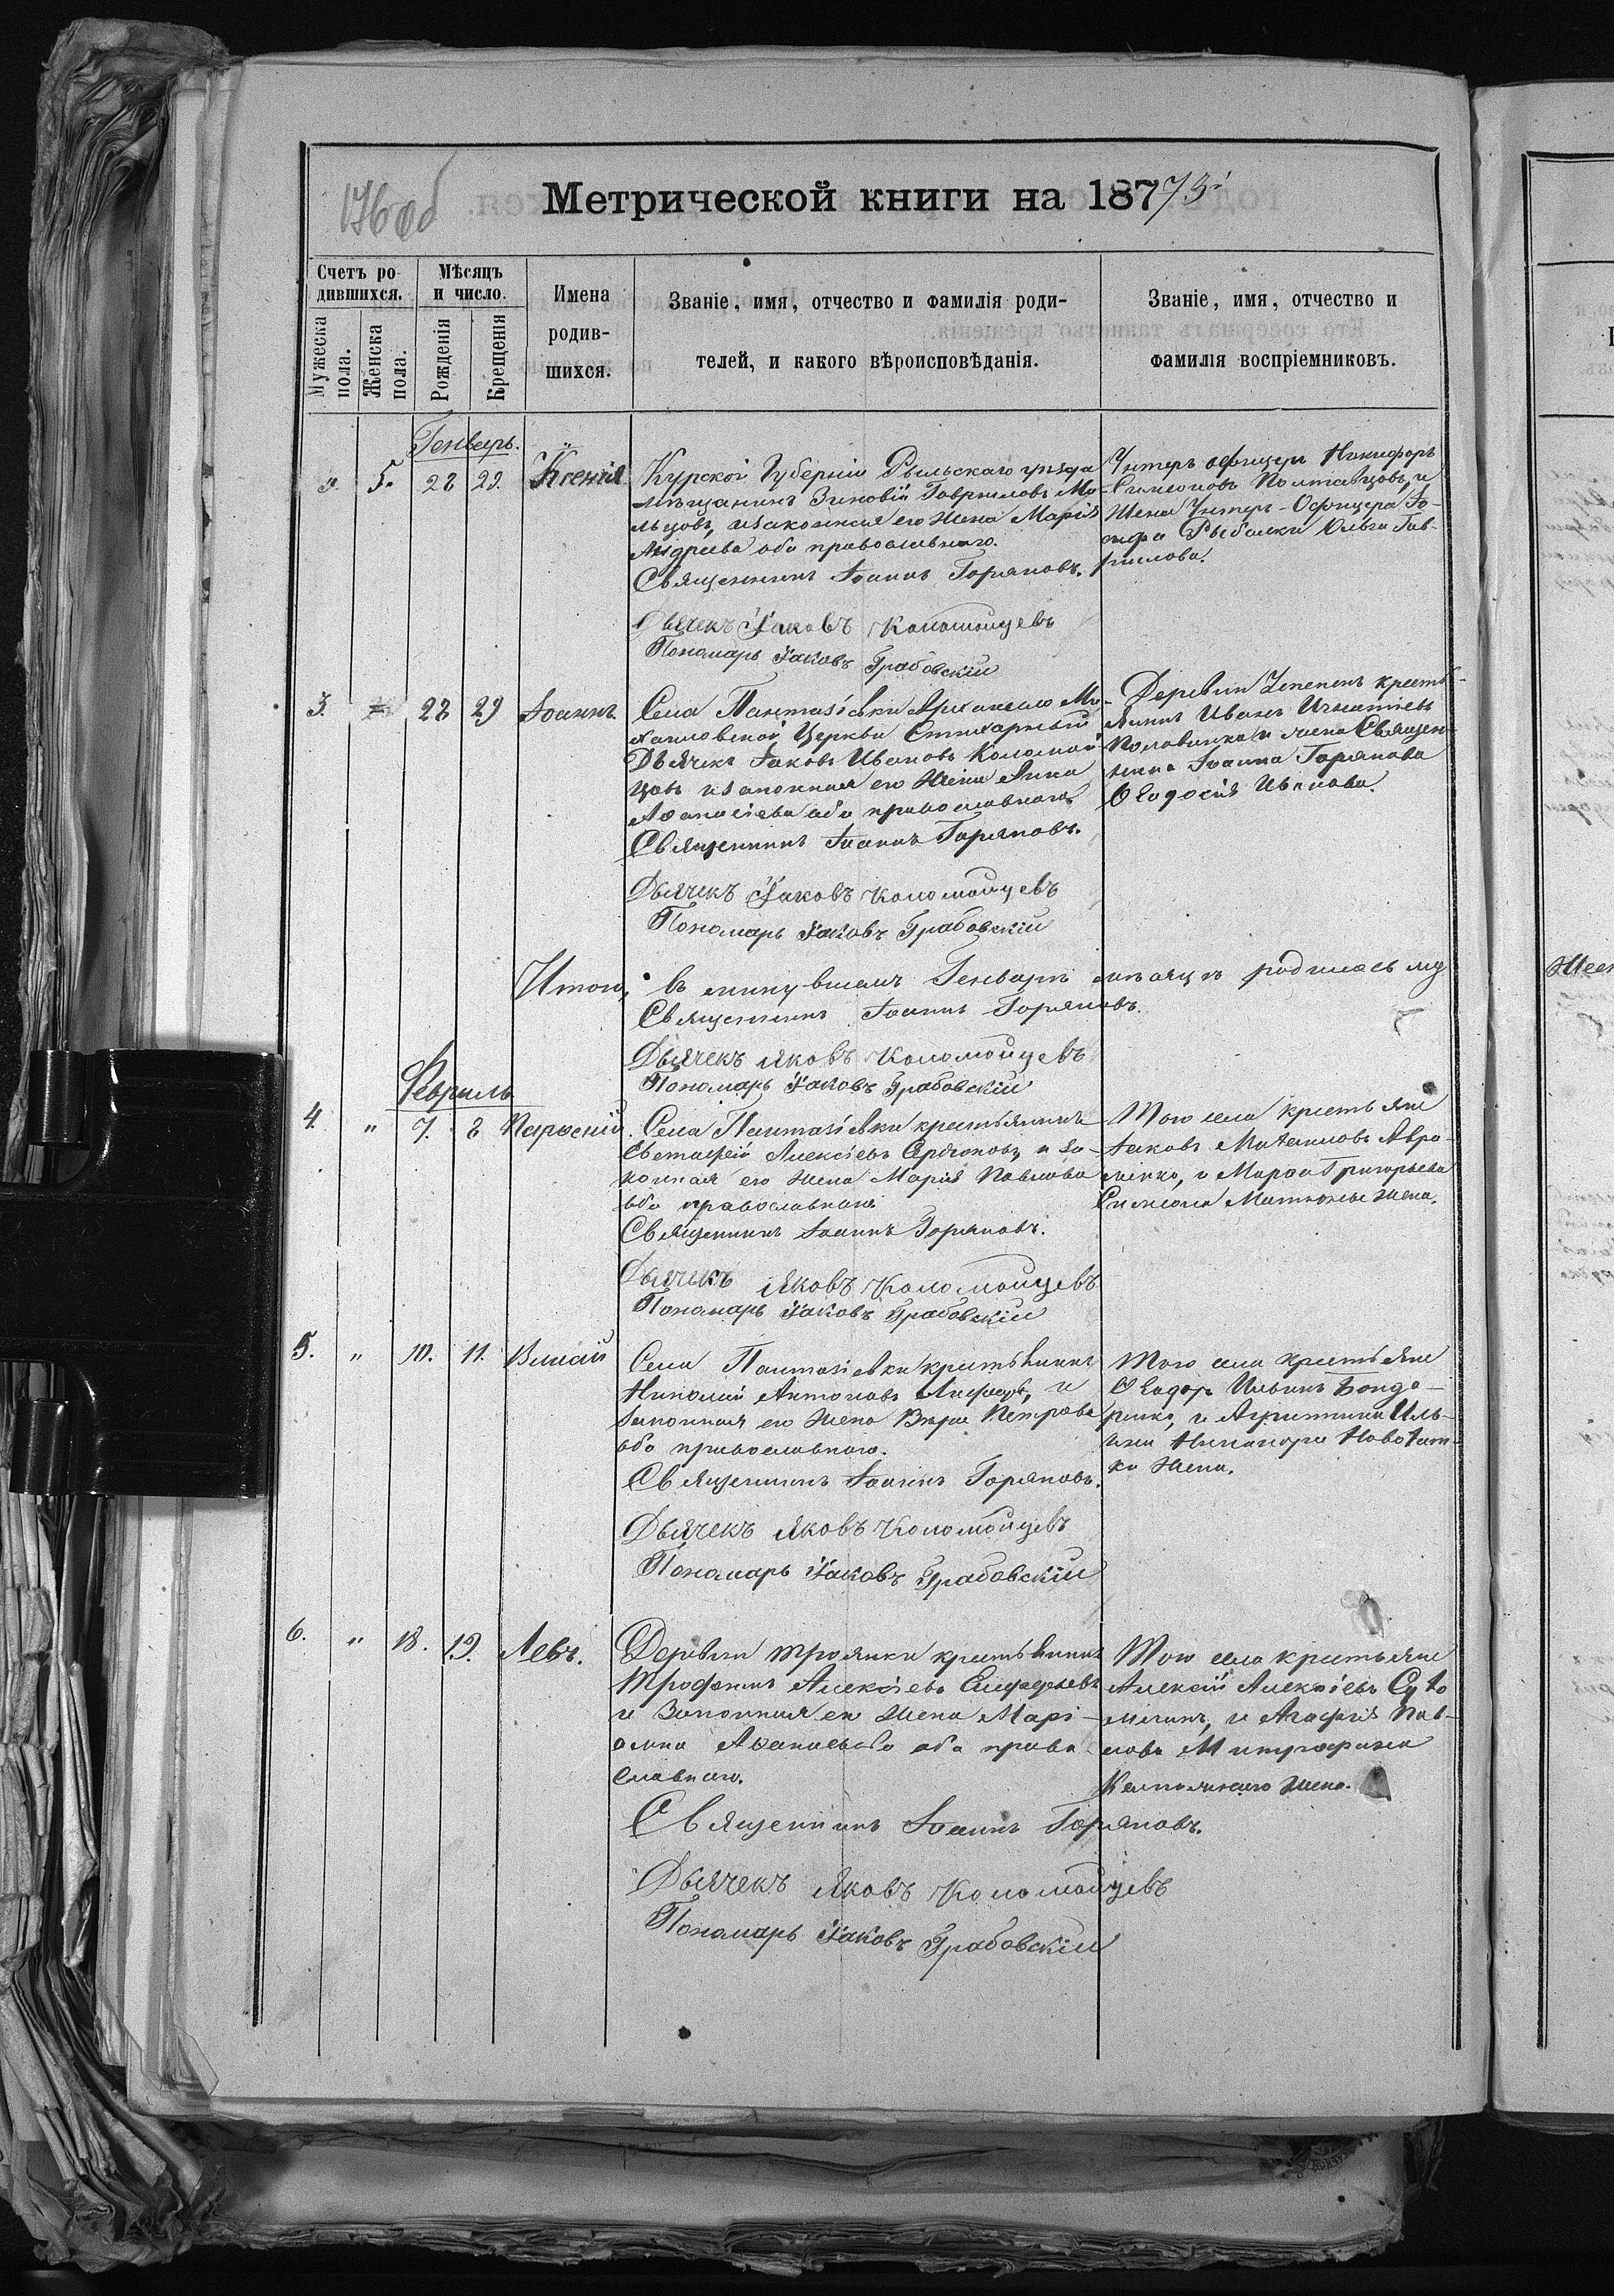 176 об
Метрической книги на 1873
Счетъ ро-
дившихся.
Мѣсяцъ
и число.
Мужеска
пола.
Женска
пола.
Рожденія
Крещенія
Имена
родив-
шихся.
Званіе, имя, отчество и фамилія роди-
телей, и какого вѣроисповѣданія.
Званіе, имя, отчество и
фамилія воспріемниковъ.
Генварь.
5. 28 29. Ксенія
Курской Губерніи Рыльскаго уѣзда
мѣщанинъ Зиновій Гавриловъ
и законная его жена Марія
Андреева оба православнаго.
Священникъ Іоаннъ Горяновъ.
Дьячекъ Іаковъ Коломойцевъ
Пономарь Іаковъ Грабовскій
Унтеръ офицеръ Никифоръ
Симеоновъ Полтавцовъ, и
жена Унтеръ-Офицера Іо-
сифа Рыбалки Ольга Гав-
рилова.
3. 28 29 Іоаннъ.
Села Пантазіевки Архангело Ми-
хаиловской Церкви Стихарный
Дьячекъ Іаковъ Ивановъ Коломой
цовъ и законная его жена Анна
Аѳанасіева оба православнаго
Священникъ Іоаннъ Горяновъ.
Дьячекъ Іаковъ Коломойцевъ
Пономарь Іаковъ Грабовскій
Деревни крестья-
нинъ Иванъ Игнатіевъ
Половинка и жена Священ-
ника Іоанна Горянова
Ѳеодосія Иванова.
Итого, въ минувшемъ Генварѣ мѣсяцѣ родилось му
Священникъ Іоаннъ Горяновъ.
Дьячекъ Яковъ Коломойцевъ
Пономарь Іаковъ Грабовскій
Февраль
4. " 7. 8 Парѳеній
Села Пантазіевки крестьянинъ
Евстафій Алексіевъ и за-
конная его жена Марія Павлова
оба православнаго
Священникъ Іоаннъ Горяновъ.
Дьячекъ Яковъ Коломойцевъ
Пономарь Іаковъ Грабовскій
Того села крестьяне
Іаковъ Михаиловъ Авра-
менко, и Марѳа Григорьева
Симеона жена.
5. " 10. 11. Власій
Села Пантазіевки крестьянинъ
Николай Антоновъ и
законная его жена Вѣра Петрова
оба православнаго.
Священникъ Іоаннъ Горяновъ.
Дьячекъ Яковъ Коломойцевъ
Пономарь Іаковъ Грабовскій
Того села крестьяне
Ѳеодоръ Ильинъ Бонда-
ренко, и Агриппина Иль-
ина Никанора Новохат-
ка жена.
6. " 18. 19. Левъ.
Деревни Троянки крестьянинъ
Трофимъ Алексіевъ
и Законная его жена Марі-
амна Аѳанасьева оба право
славнаго.
Священникъ Іоаннъ Горяновъ.
Дьячекъ Яковъ Коломойцевъ
Пономарь Іаковъ Грабовскій
Того села крестьяне
Алексій Алексіевъ Сухо
млинъ, и Агафія Пав-
лова Митрофана
жена.